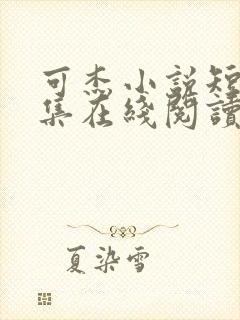 可杰小說短
集在綫閱讀
夏染雪